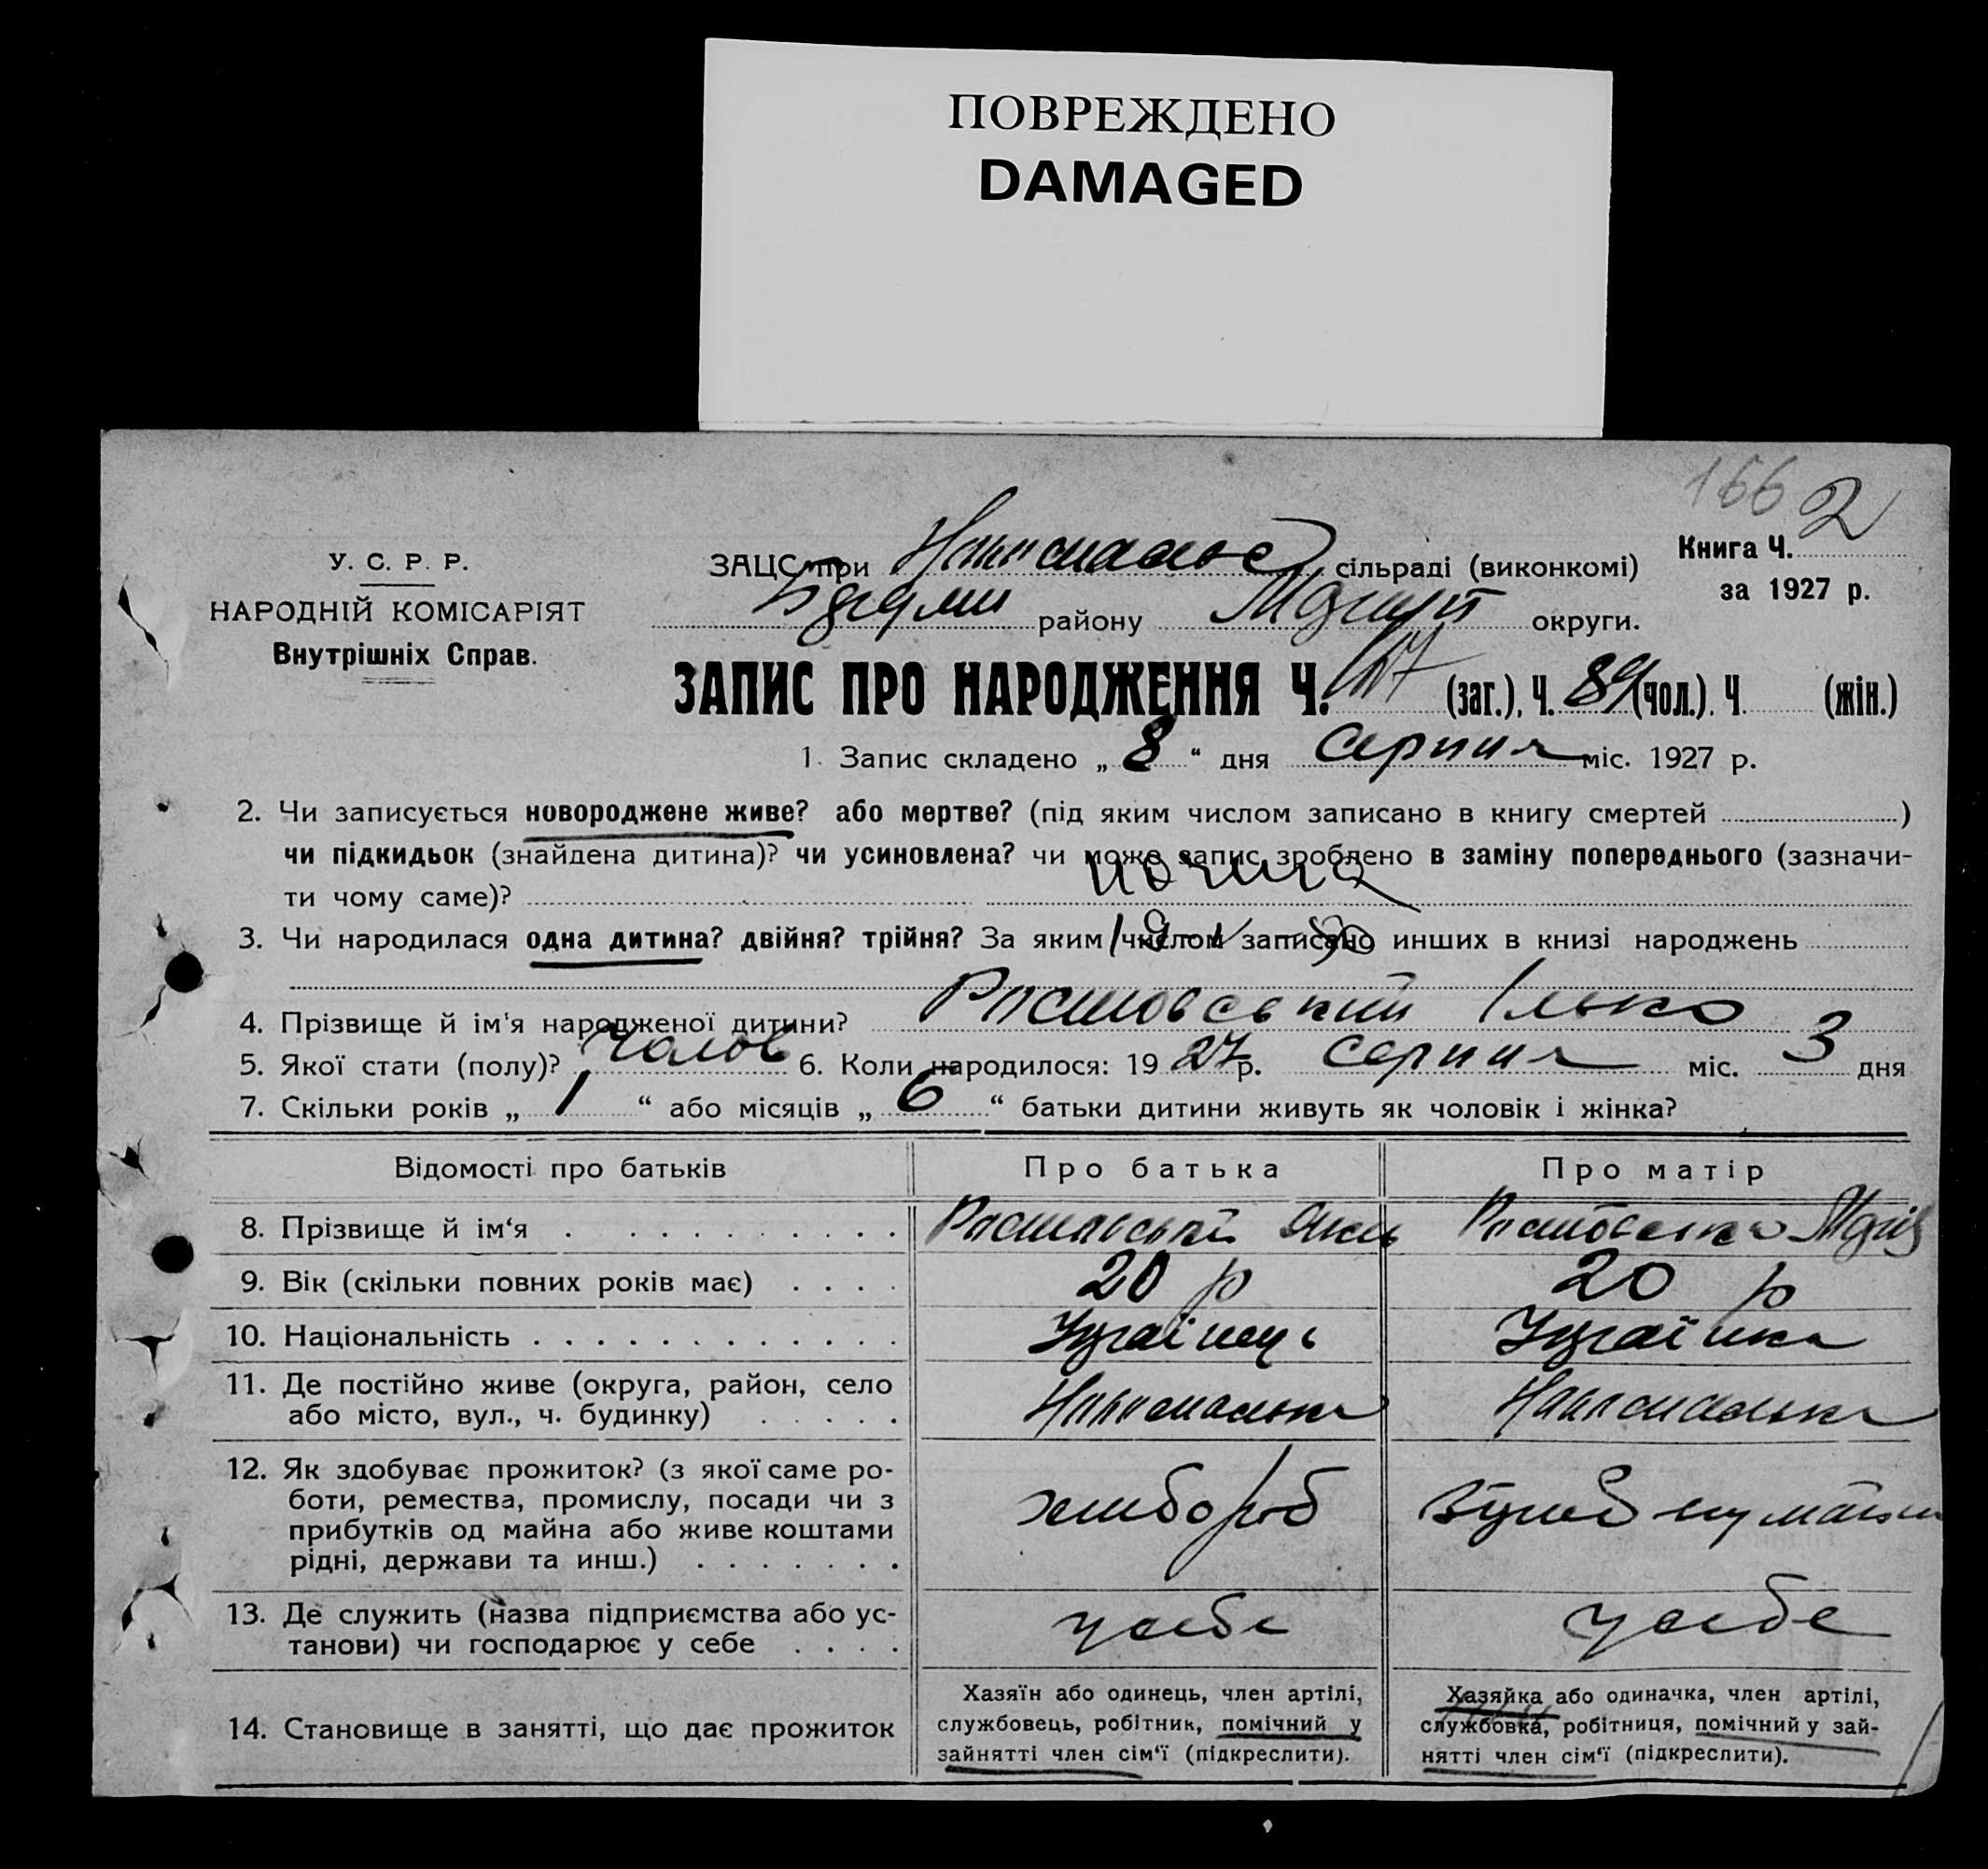 ПОВРЕЖДЕНО
DAMAGED
166 2
У. С. Р. Р.
НАРОДНІЙ КОМІСАРІЯТ
Внутрішніх Справ.
ЗАЦС при сільраді (виконкомі)
Книга Ч.
за 1927 р.
району округи.
ЗАПИС ПРО НАРОДЖЕННЯ Ч. (заг.). Ч. 89 (чол.). Ч. (жін.)
1. Запис складено „ 8 “ дня Серпня міс. 1927 р.
2. Чи записується новороджене живе? або мертве? (під яким числом записано в книгу смертей )
чи підкидьок (знайдена дитина)? чи усиновлена? чи може запис зроблено в заміну попереднього (зазначи-
ти чому саме)?
3. Чи народилася одна дитина? двійня? трійня? За яким числом записано инших в книзі народжень
4. Прізвище й ім'я народженої дитини? Ілько
5. Якої стати (полу)? Чолов 6. Коли народилося: 19 27 р. Серпня міс. 3 дня
7. Скільки років „ 1 “ або місяців „ 6 “ батьки дитини живуть як чоловік і жінка?
Відомості про батьків Про батька Про матір
8. Прізвище й ім‘я
9. Вік (скільки повних років має) 20 р 20 р
10. Національність Українець Українка
11. Де постійно живе (округа, район, село
або місто, вул., ч. будинку)
12. Як здобуває прожиток? (з якої саме ро-
боти, ремества, промислу, посади чи з
прибутків од майна або живе коштами
рідні, держави та инш.) хлібороб
13. Де служить (назва підприємства або ус-
танови) чи господарює у себе у себе у себе
14. Становище в занятті, що дає прожиток
Хазяїн або одинець, член артілі,
службовець, робітник, помічний у
зайнятті член сім‘ї (підкреслити).
Хазяйка або одиначка, член артілі,
службовка, робітниця, помічний у зай-
нятті член сім‘ї (підкреслити).